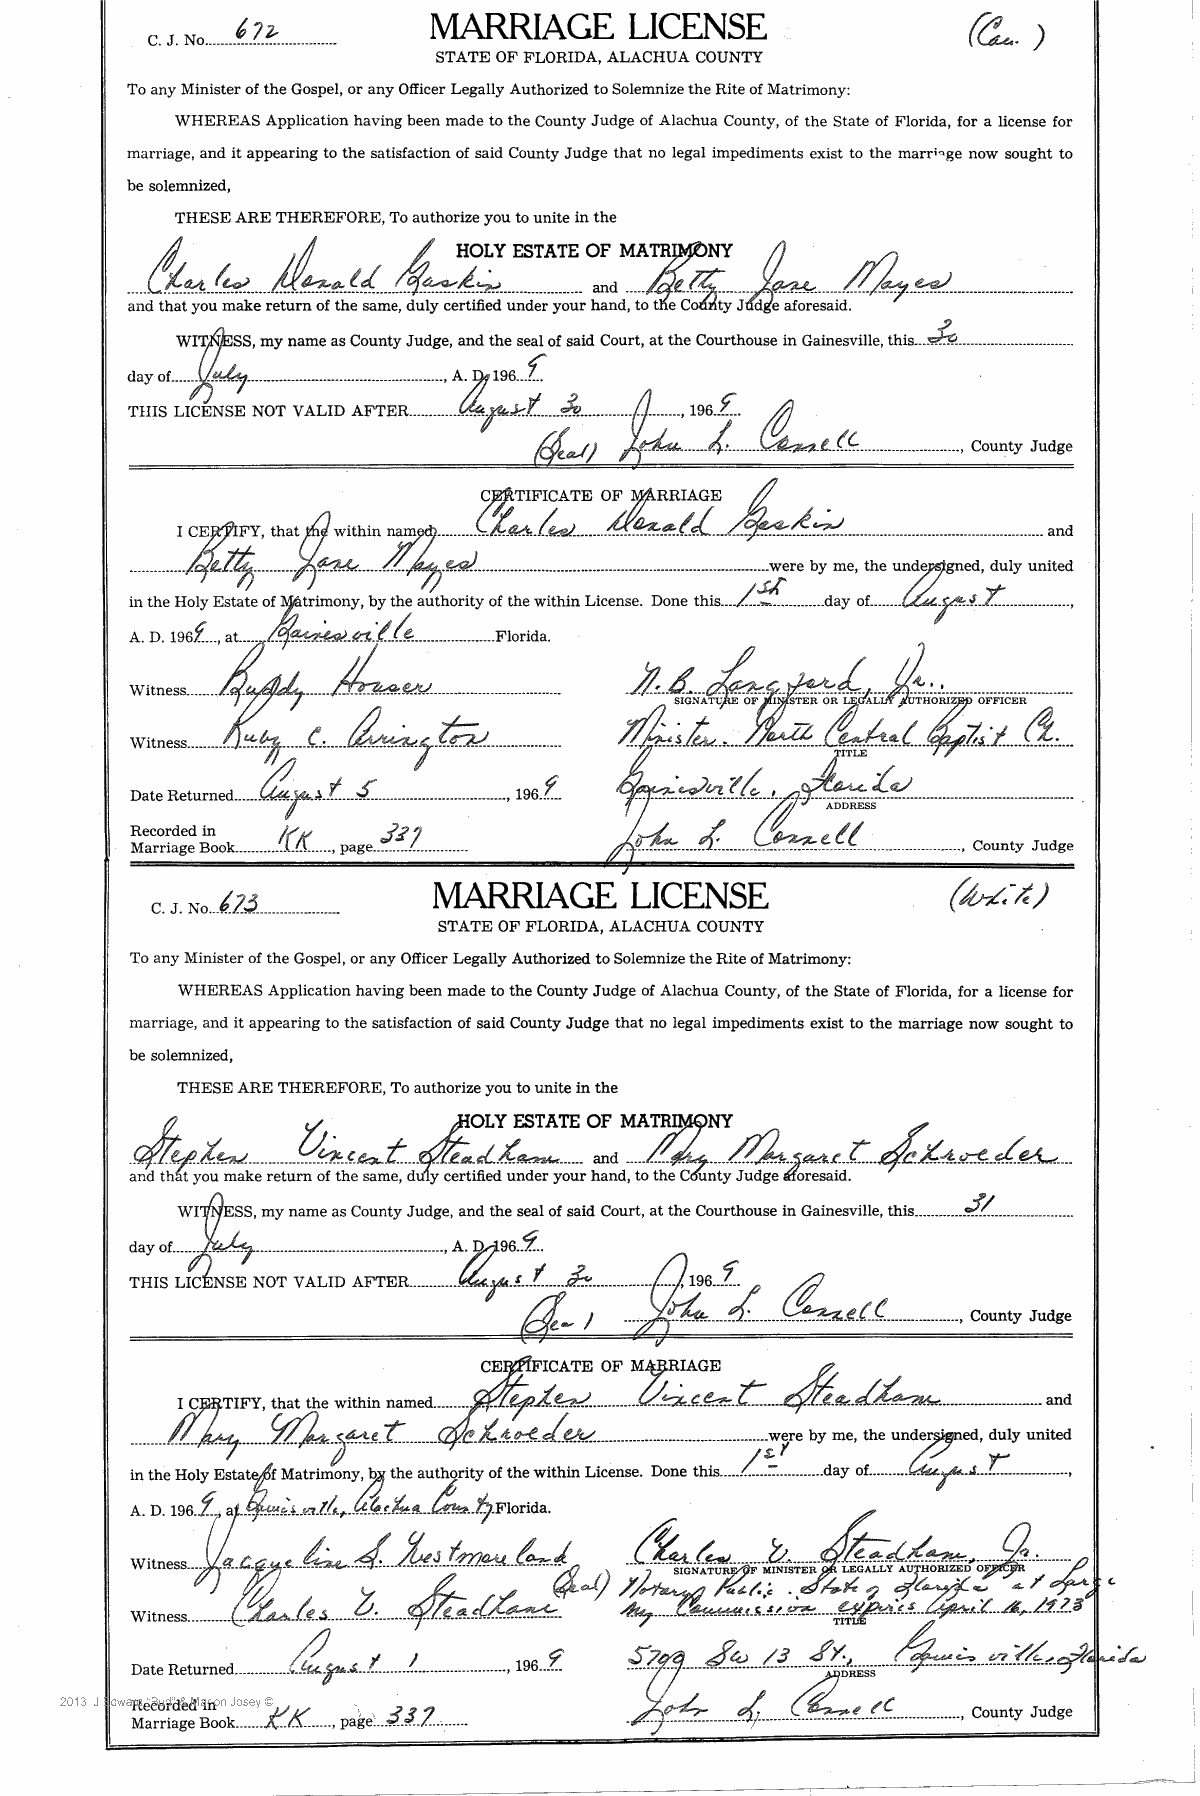 C. J. No. 672 MARRIAGE LICENSE (Cau. )
STATE OF FLORIDA, ALACHUA COUNTY
To any Minister of the Gospel, or any Officer Legally Authorized to Solemnize the Rite of Matrimony:
WHEREAS Application having been made to the County Judge of Alachua County, of the State of Florida, for a license for
marriage, and it appearing to the satisfaction of said County Judge that no legal impediments exist to the marriage now sought to
be solemnized,
THESE ARE THEREFORE, To authorize you to unite in the
HOLY ESTATE OF MATRIMONY
Charles Donald Gaskin and Betty Jane Mayes
and that you make return of the same, duly certified under your hand, to the County Judge aforesaid.
WITNESS, my name as County Judge, and the seal of said Court, at the Courthouse in Gainesville, this 30
day of July, A. D. 1969
THIS LICENSE NOT VALID AFTER August 30, 1969
(Seal) John L. Connell, County Judge
CERTIFICATE OF MARRIAGE
I CERTIFY, that the within named Charles Donald Gaskin and
Betty Jane Mayes were by me, the undersigned, duly united
in the Holy Estate of Matrimony, by the authority of the within License. Done this 1st day of August,
A. D. 1969, at Gainesville Florida.
Witness Buddy Houser N. B. Langford, Jr.
SIGNATURE OF MINISTER OR LEGALLY AUTHORIZED OFFICER
Witness Ruby C. Arrington Minister. North Central Baptist Ch.
TITLE
Date Returned August 5, 1969 Gainesville, Florida
ADDRESS
Recorded in
Marriage Book KK, page 337 John L. Connell, County Judge
C. J. No. 673 MARRIAGE LICENSE (White)
STATE OF FLORIDA, ALACHUA COUNTY
To any Minister of the Gospel, or any Officer Legally Authorized to Solemnize the Rite of Matrimony:
WHEREAS Application having been made to the County Judge of Alachua County, of the State of Florida, for a license for
marriage, and it appearing to the satisfaction of said County Judge that no legal impediments exist to the marriage now sought to
be solemnized,
THESE ARE THEREFORE, To authorize you to unite in the
HOLY ESTATE OF MATRIMONY
Stephen Vincent Steadham and Mary Margaret Schroeder
and that you make return of the same, duly certified under your hand, to the County Judge aforesaid.
WITNESS, my name as County Judge, and the seal of said Court, at the Courthouse in Gainesville, this 31
day of July, A. D. 1969
THIS LICENSE NOT VALID AFTER August 30, 1969
(Seal) John L. Connell, County Judge
CERTIFICATE OF MARRIAGE
I CERTIFY, that the within named Stephen Vincent Steadham and
Mary Margaret Schroeder were by me, the undersigned, duly united
in the Holy Estate of Matrimony, by the authority of the within License. Done this 1st day of August,
A. D. 1969, at Gainesville, Alachua County Florida.
Witness Jacqueline S. Westmoreland Charles V. Steadham, Jr.
SIGNATURE OF MINISTER OR LEGALLY AUTHORIZED OFFICER
(Seal) Notary Public. State of Florida at Large
Witness Charles V. Steadham My Commission expires April 16, 1973
TITLE
Date Returned August 1, 1969 5799 SW 13 St., Gainesville, Florida
ADDRESS
Recorded in
Marriage Book KK, page 337 John L. Connell, County Judge